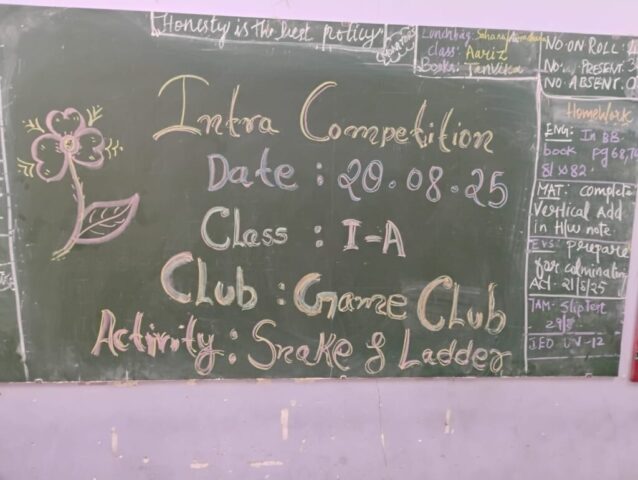 Honesty is the best policy
Lunchbag: Sahana
Class: Aariz
Books: Tanvika
NO. ON ROLL:
NO. PRESENT:
NO. ABSENT:
Intra Competition
Date : 20.08.25
Class : I-A
Club : Game Club
Activity : Snake & Ladder
Homework
ENG: In BB
book pg 68,
81 x 82
MAT: complete
Vertical Add
in H/w note.
EVS: prepare
for culminating
Act. 21/8/25
TAM- Slip Test
29/8